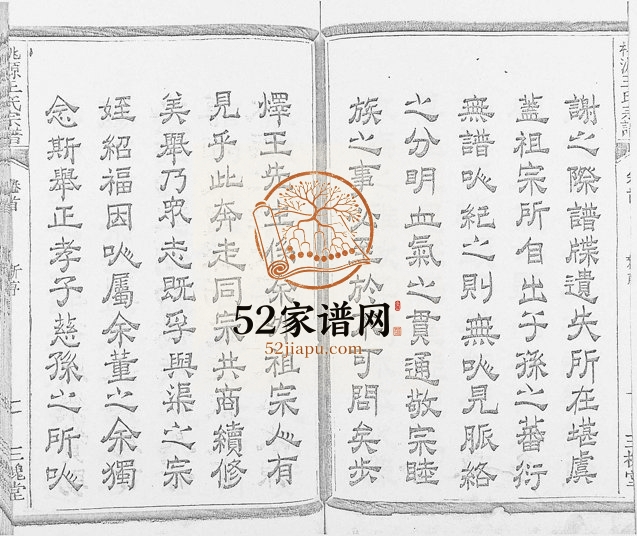 謝之際譜牒遺失所在堪虞
蓋祖宗所自出子孫之蕃衍
無譜以紀之則無以見脈絡
之分明血氣之貫通敬宗睦
族之事於可問矣步
燡王祖宗人有
見乎此奔走同宗共商續修
美舉乃眾志既孚與渠之宗
姪紹福因以屬余董之余獨
念斯舉正孝子慈孫之所以
桃源王氏宗譜 卷首 新序 三槐堂
52家谱网
52jiapu.com